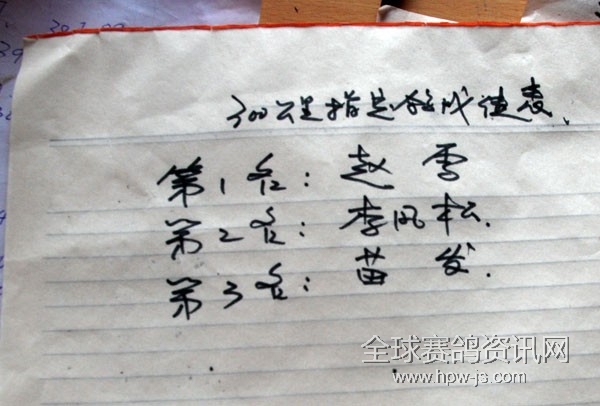 300公里指定鸽成绩表
第1名：赵雪
第2名：李风松.
第3名：苗发.
全球赛鸽资讯网
www.hpw-js.com